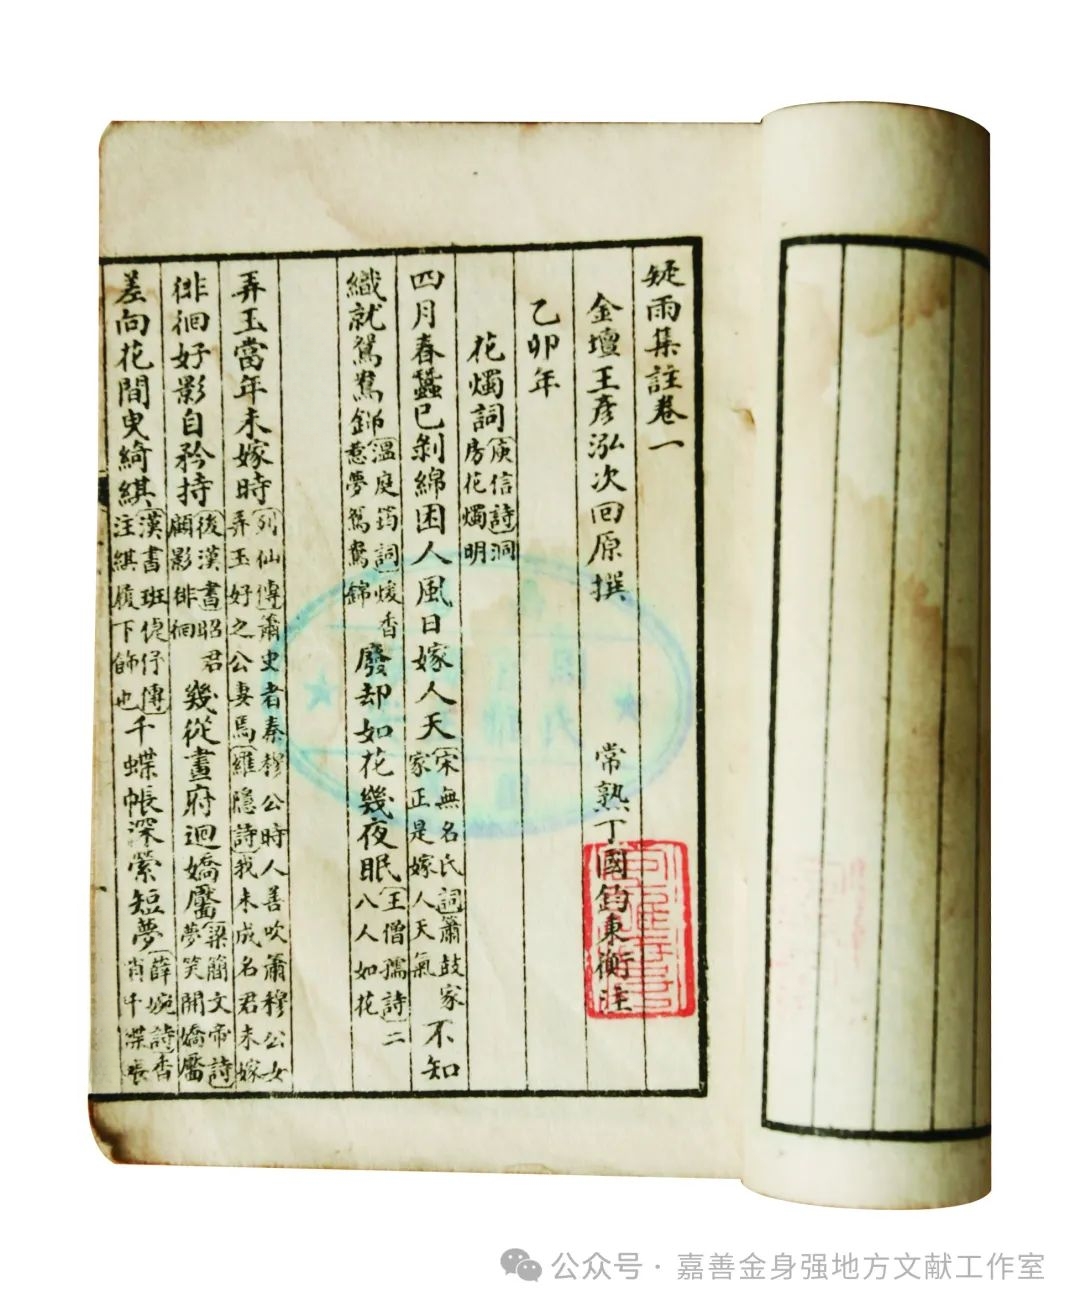 疑雨集註卷一
金壇王彥泓次回原撰 常熟丁國鈞秉衡注
乙卯年
花燭詞 庾信詩洞房花燭明
四月春蠶已剝綿困人風日嫁人天 宋無名氏詞簫鼓家家正是嫁人天氣 不知
織就鴛鴦錦 溫庭筠詞煖香惹夢鴛鴦錦 廢却如花幾夜眠 王僧孺詩二八人如花
弄玉當年未嫁時 列仙傳簫史者秦穆公時人善吹簫穆公女弄玉好之公妻焉羅隱詩我未成名君未嫁
徘徊好影自矜持 後漢書昭君顧影徘徊 幾從畫府迴嬌靨 梁簡文帝詩夢笑開嬌靨
差向花間曳綺綦 漢書班倢伃傳注綦履下飾也 千蝶帳深縈短夢 薛婉詩香肖千蝶帳
公众号·嘉善金身强地方文献工作室